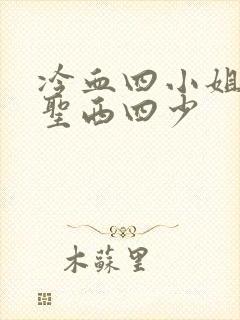 冷血四小姐
聖西四少
木蘇里